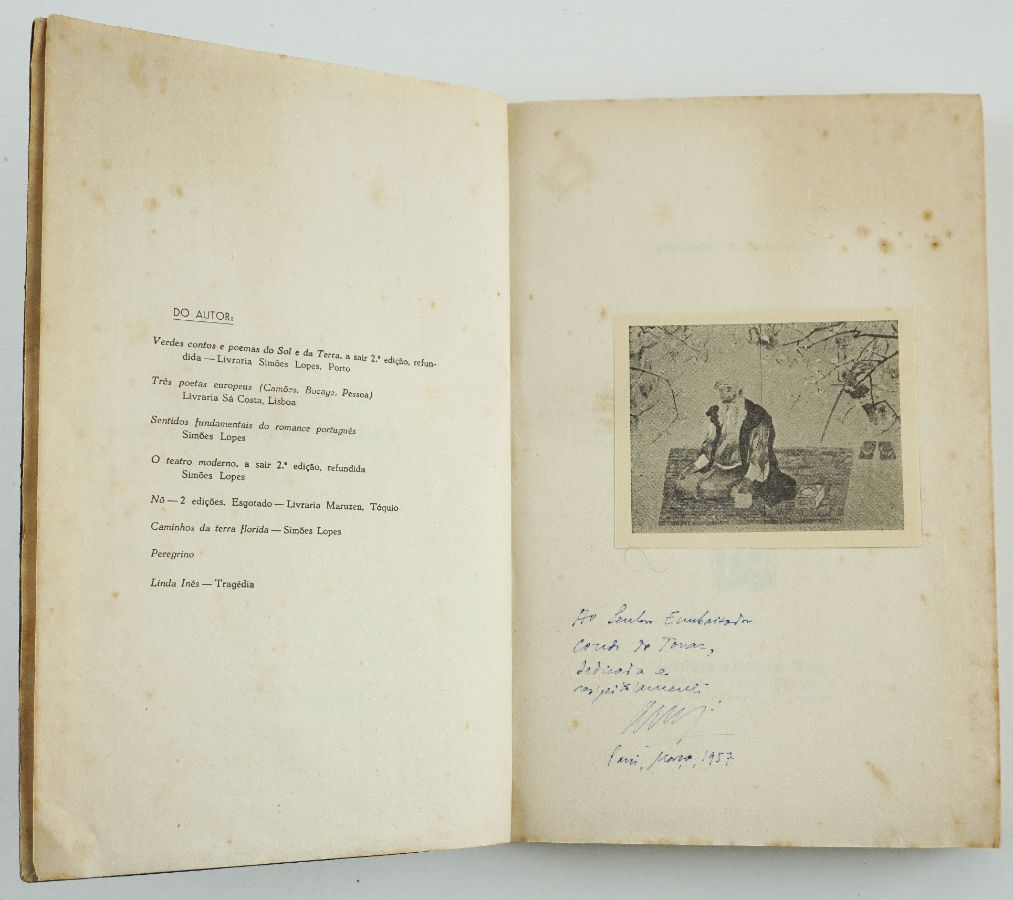 DO AUTOR:
Verdes contos e poemas do Sol e da Terra, a sair 2.ª edição, refun-
dida — Livraria Simões Lopes, Porto
Três poetas europeus (Camões, Bocage, Pessoa)
Livraria Sá Costa, Lisboa
Sentidos fundamentais do romance português
Simões Lopes
O teatro moderno, a sair 2.ª edição, refundida
Simões Lopes
Nô — 2 edições. Esgotado — Livraria Maruzen, Tóquio
Caminhos da terra florida — Simões Lopes
Peregrino
Linda Inês — Tragédia
Ao Senhor Embaixador
Conde de Tovar,
dedicada e
respeitosamente
Março, 1957